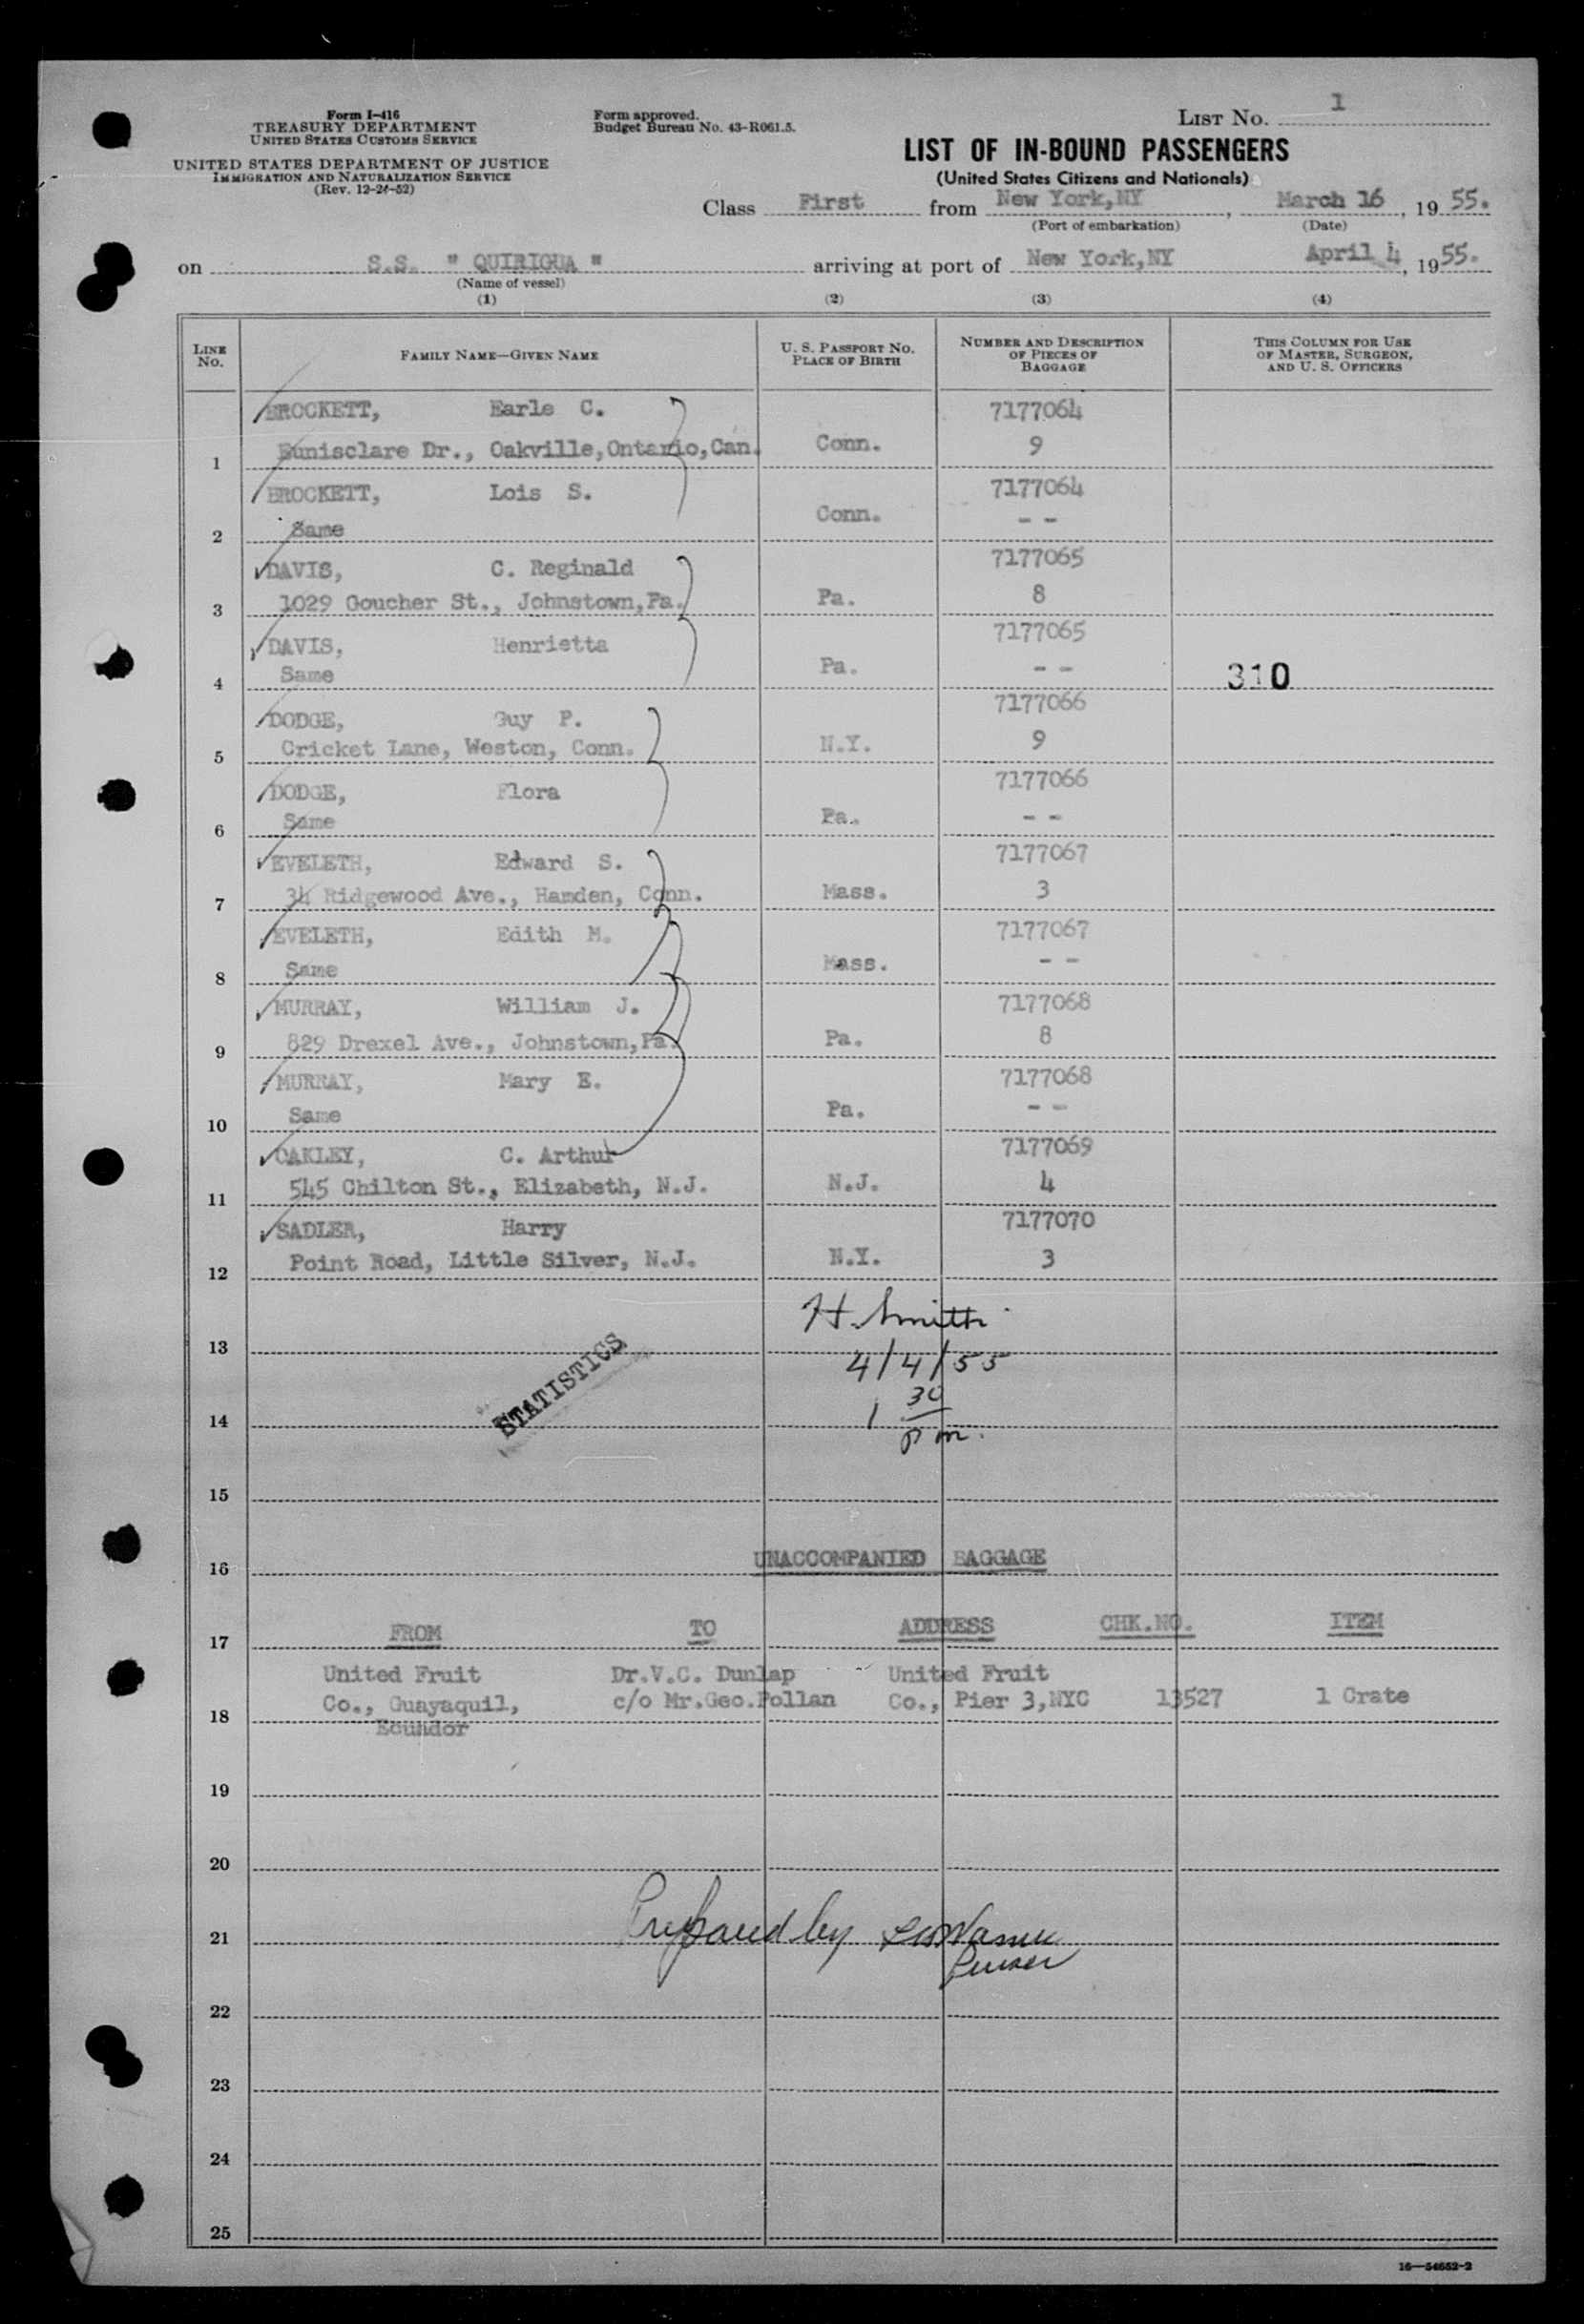 Form I-416
TREASURY DEPARTMENT
UNITED STATES CUSTOMS SERVICE
UNITED STATES DEPARTMENT OF JUSTICE
IMMIGRATION AND NATURALIZATION SERVICE
(Rev. 12-24-52)
Form approved.
Budget Bureau No. 43-R061.5.
LIST NO. 1
LIST OF IN-BOUND PASSENGERS
(United States Citizens and Nationals)
Class First from New York,NY, March 16, 1955.
(Port of embarkation) (Date)
on S.S. " QUIRIGUA " arriving at port of New York,NY April 4, 1955.
(Name of vessel)
(1) (2) (3) (4)
LINE NO. FAMILY NAME—GIVEN NAME U. S. PASSPORT NO. PLACE OF BIRTH NUMBER AND DESCRIPTION OF PIECES OF BAGGAGE THIS COLUMN FOR USE OF MASTER, SURGEON, AND U. S. OFFICERS
BROCKETT, Earle C. 7177064
1 Eunisclare Dr., Oakville,Ontario,Can. Conn. 9
BROCKETT, Lois S. 7177064
2 Same Conn. - -
DAVIS, C. Reginald 7177065
3 1029 Goucher St., Johnstown,Pa. Pa. 8
DAVIS, Henrietta 7177065
4 Same Pa. - - 310
DODGE, Guy P. 7177066
5 Cricket Lane, Weston, Conn. N.Y. 9
DODGE, Flora 7177066
6 Same Pa. - -
EVELETH, Edward S. 7177067
7 34 Ridgewood Ave., Hamden, Conn. Mass. 3
EVELETH, Edith M. 7177067
8 Same Mass. - -
MURRAY, William J. 7177068
9 829 Drexel Ave., Johnstown,Pa. Pa. 8
MURRAY, Mary E. 7177068
10 Same Pa. - -
OAKLEY, C. Arthur 7177069
11 545 Chilton St., Elizabeth, N.J. N.J. 4
SADLER, Harry 7177070
12 Point Road, Little Silver, N.J. N.Y. 3
H. Smith
13
4/4/55
STATISTICS
14 1 30
p m.
15
16 UNACCOMPANIED BAGGAGE
17 FROM TO ADDRESS CHK.NO. ITEM
United Fruit Dr.V.C. Dunlap United Fruit
18 Co., Guayaquil, c/o Mr.Geo.Pollan Co., Pier 3,NYC 13527 1 Crate
Ecuador
19
20
21 Prepared by
Purser
22
23
24
25
16—54652-2